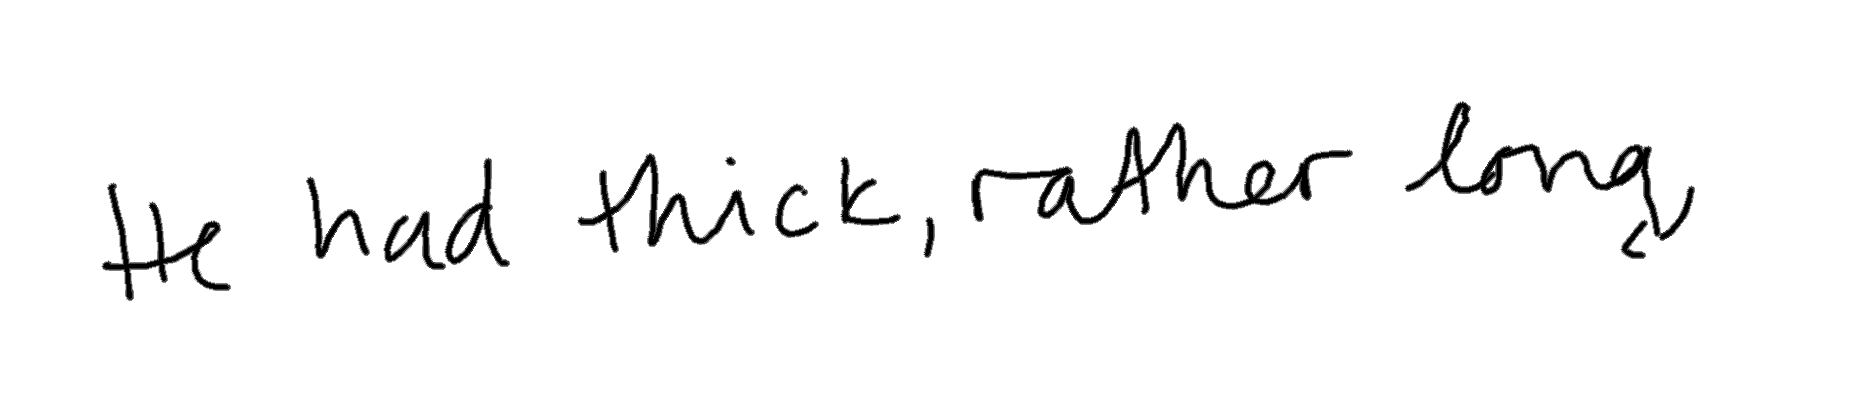 He had thick, rather long,